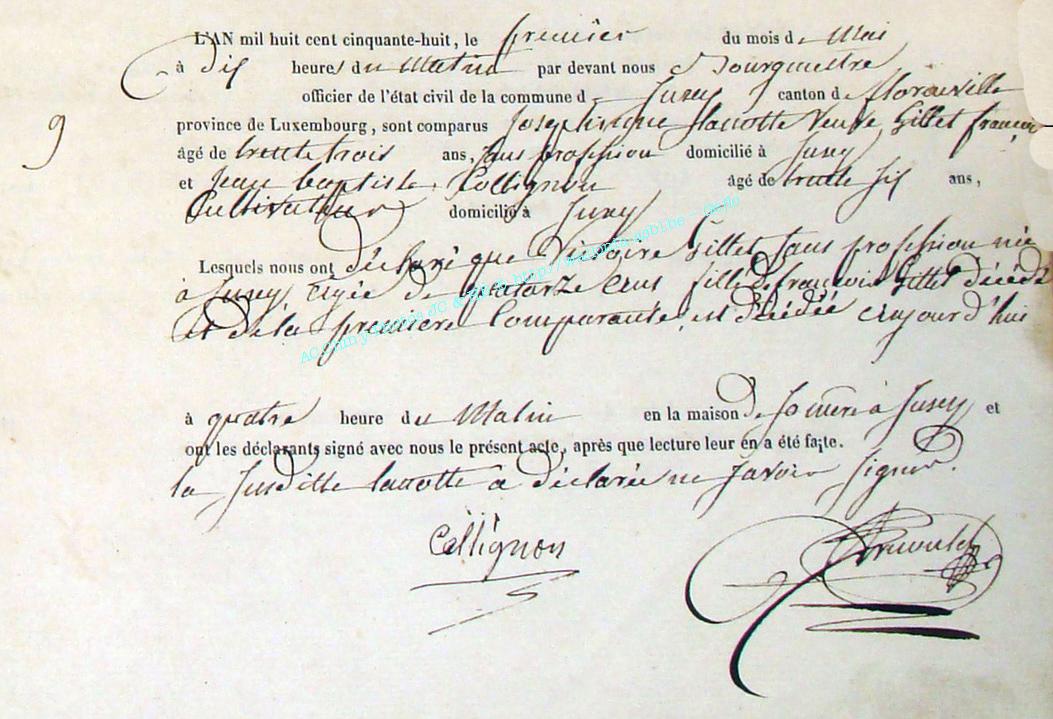 L'AN mil huit cent cinquante-huit, le premier du mois d Mai
à dix heures du Matin par devant nous Bourgmestre
officier de l'état civil de la commune d Juzey canton d
province de Luxembourg, sont comparus Josephine Lanotte veuve Gillet françois
9
âgé de trente trois ans, sans profession domicilié à Juzey
et Jean baptiste Collignon âgé de trente six ans,
Cultivateur domicilié à Juzey
Lesquels nous ont déclaré que Victoire Gillet sans profession née
à Juzey agée de quatorze ans fille de françois Gillet décédé
et de la premiere Comparante, est décédée aujourd'hui
à quatre heure du Matin en la maison de sa mère à Juzey et
ont les déclarants signé avec nous le présent acte, après que lecture leur en a été faite.
la susditte lanotte a déclarée ne savoir signer.
Collignon